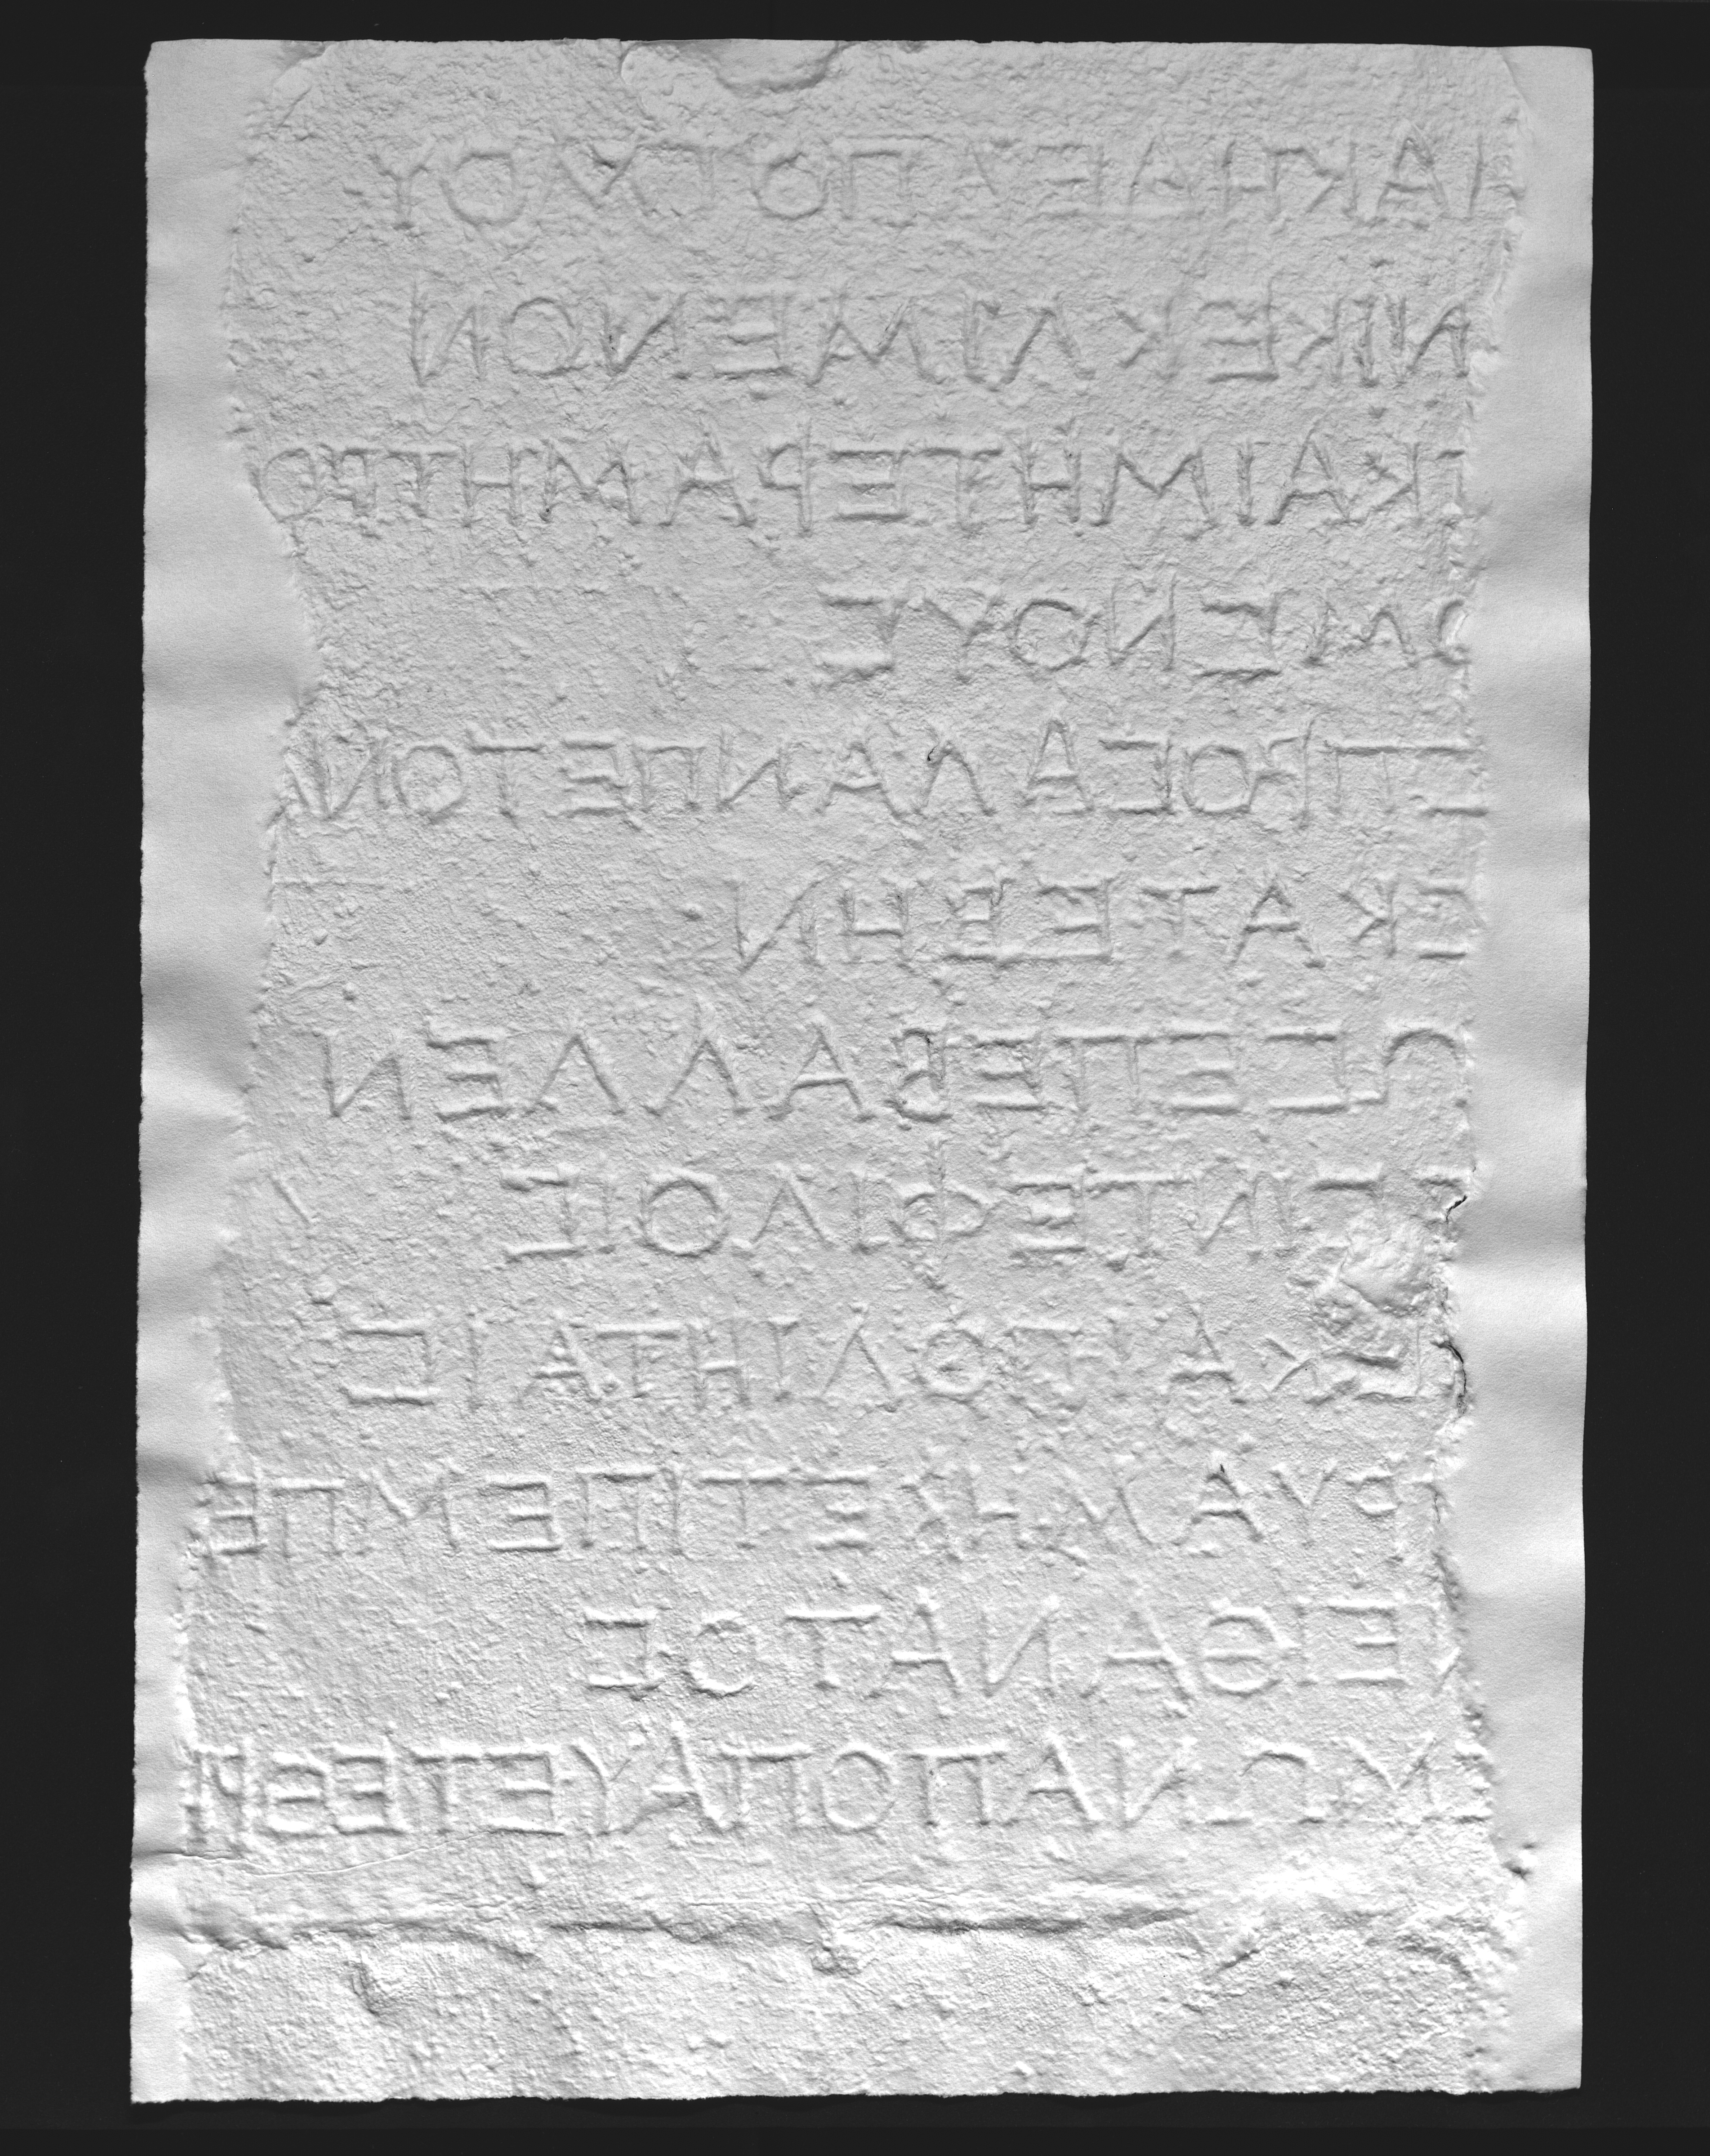 ΙΑΚΗΔΕΑΠΟΤΜΟΥ
ΝΙΚΕΚΛΙΜΕΝΟΝ
ΙΚΑΙΜΗΤΕΡΑΜΗΤΡΟ
ΟΜΕΝΟΥΣ
ΣΠΡΟΣΑΛΑΝΠΕΤΟΝ
ΕΚΑΤΕΒΗΝ
ΩΣΕΠΕΒΑΛΛΕΝ
ΣΙΝΤΕΦΙΛΟΙΣ
ΣΚΑΙΠΟΛΙΗΤΑΙΣ
ΡΥΑΜΗΚΕΤΙΠΕΜΠΕ
ΕΙΘΑΝΑΤΟΣ
ΜΩΝΑΠΟΠΑΥΕΤΕΘΡΗ